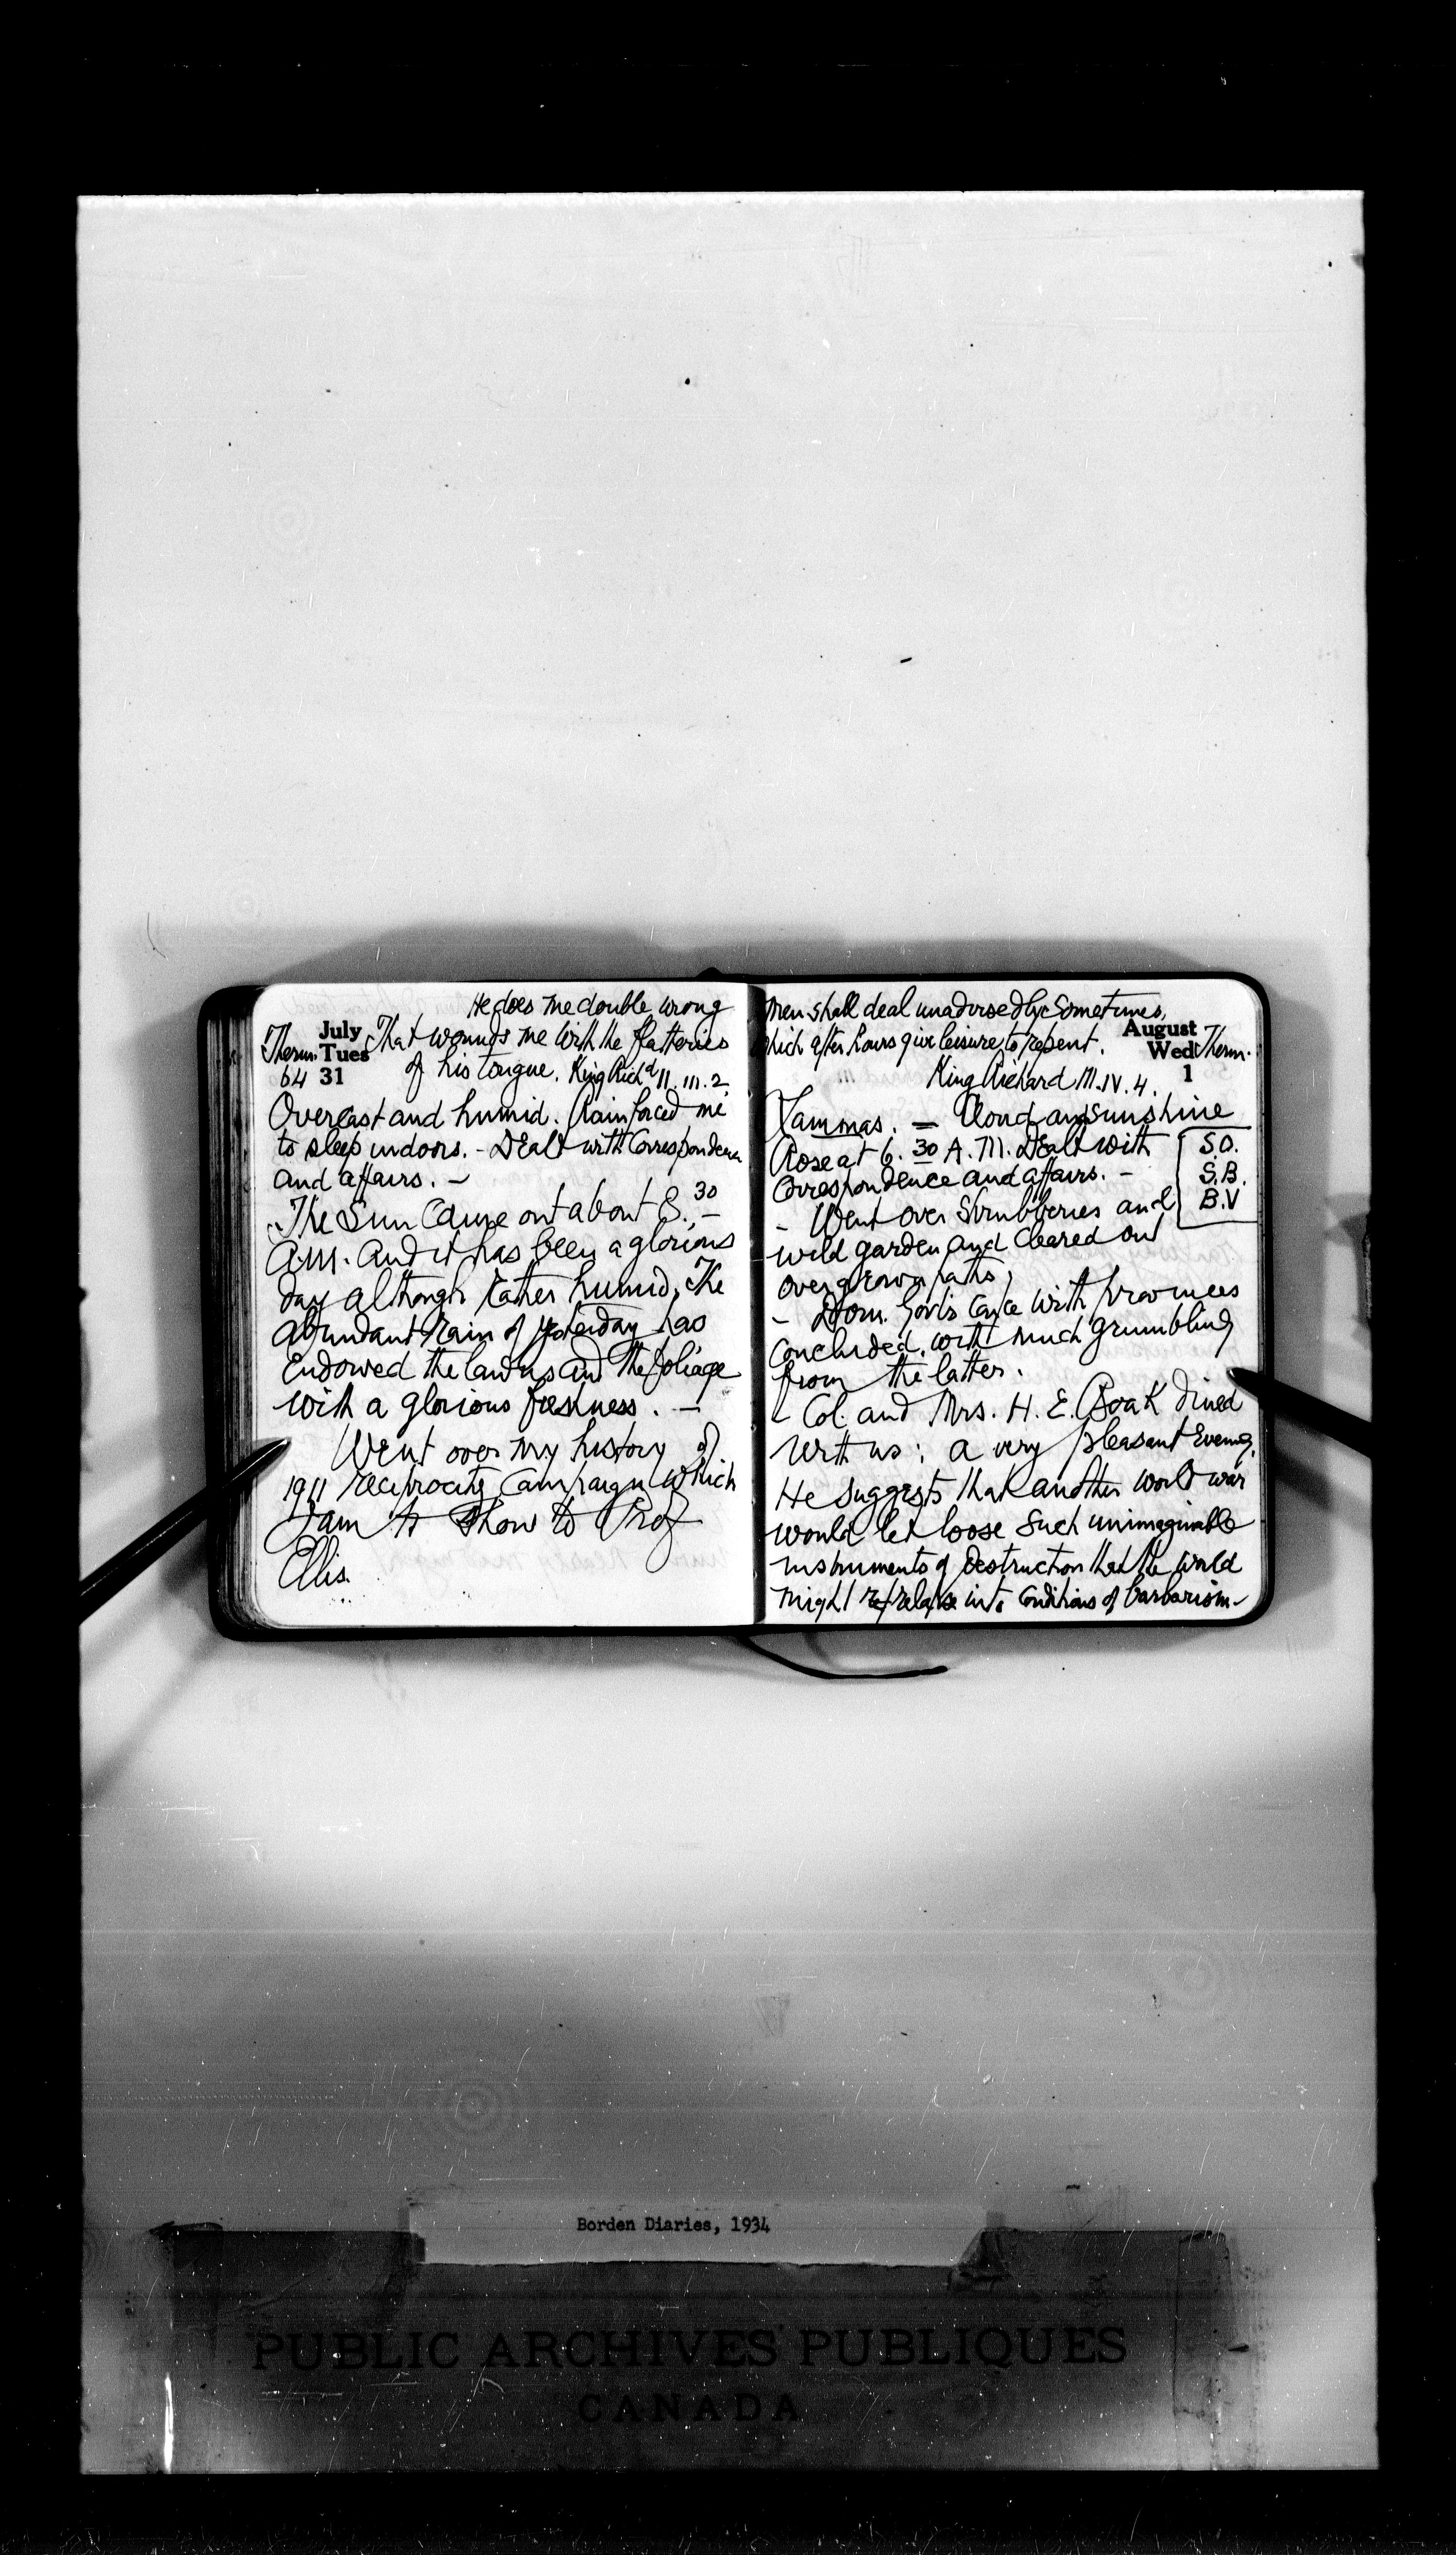 He does me double wrong
That wounds me with the flatteries
of his tongue. King Richd II. III. 2.
July
Tues
31
Therm.
64
Overcast and humid. Rain forced me
to sleep indoors. - Dealt with Correspondence
and affairs. -
The Sun Came out about 8.30
A.M. and it has been a glorious
day although rather humid. The
abundant rain of yesterday has
Endowed the lawns and the foliage
with a glorious freshness. -
Went over my history of
1911 reciprocity Campaign which
I am to show to Prof
Ellis.
Men shall deal unadvisedly Sometimes,
Which after hours give leisure to repent.
King Richard III. IV. 4.
August
Wed
1
Therm.
Lammas. - Cloud and sunshine
Rose at 6.30 A.M. Dealt with
Correspondence and affairs. -
S.O.
S.B.
B.V
- Went over Shrubberies and
wild garden and Cleared out
overgrown paths,
- Dom. Govt's Conf.ce with provinces
concluded, with much grumbling
from the latter.
- Col. and Mrs. H. E. Boak dined
with us; a very pleasant Evening.
He suggests that another world war
would let loose Such unimaginable
instruments of destruction that the world
might relapse into Conditions of barbarism -
Borden Diaries, 1934
PUBLIC ARCHIVES PUBLIQUES
CANADA